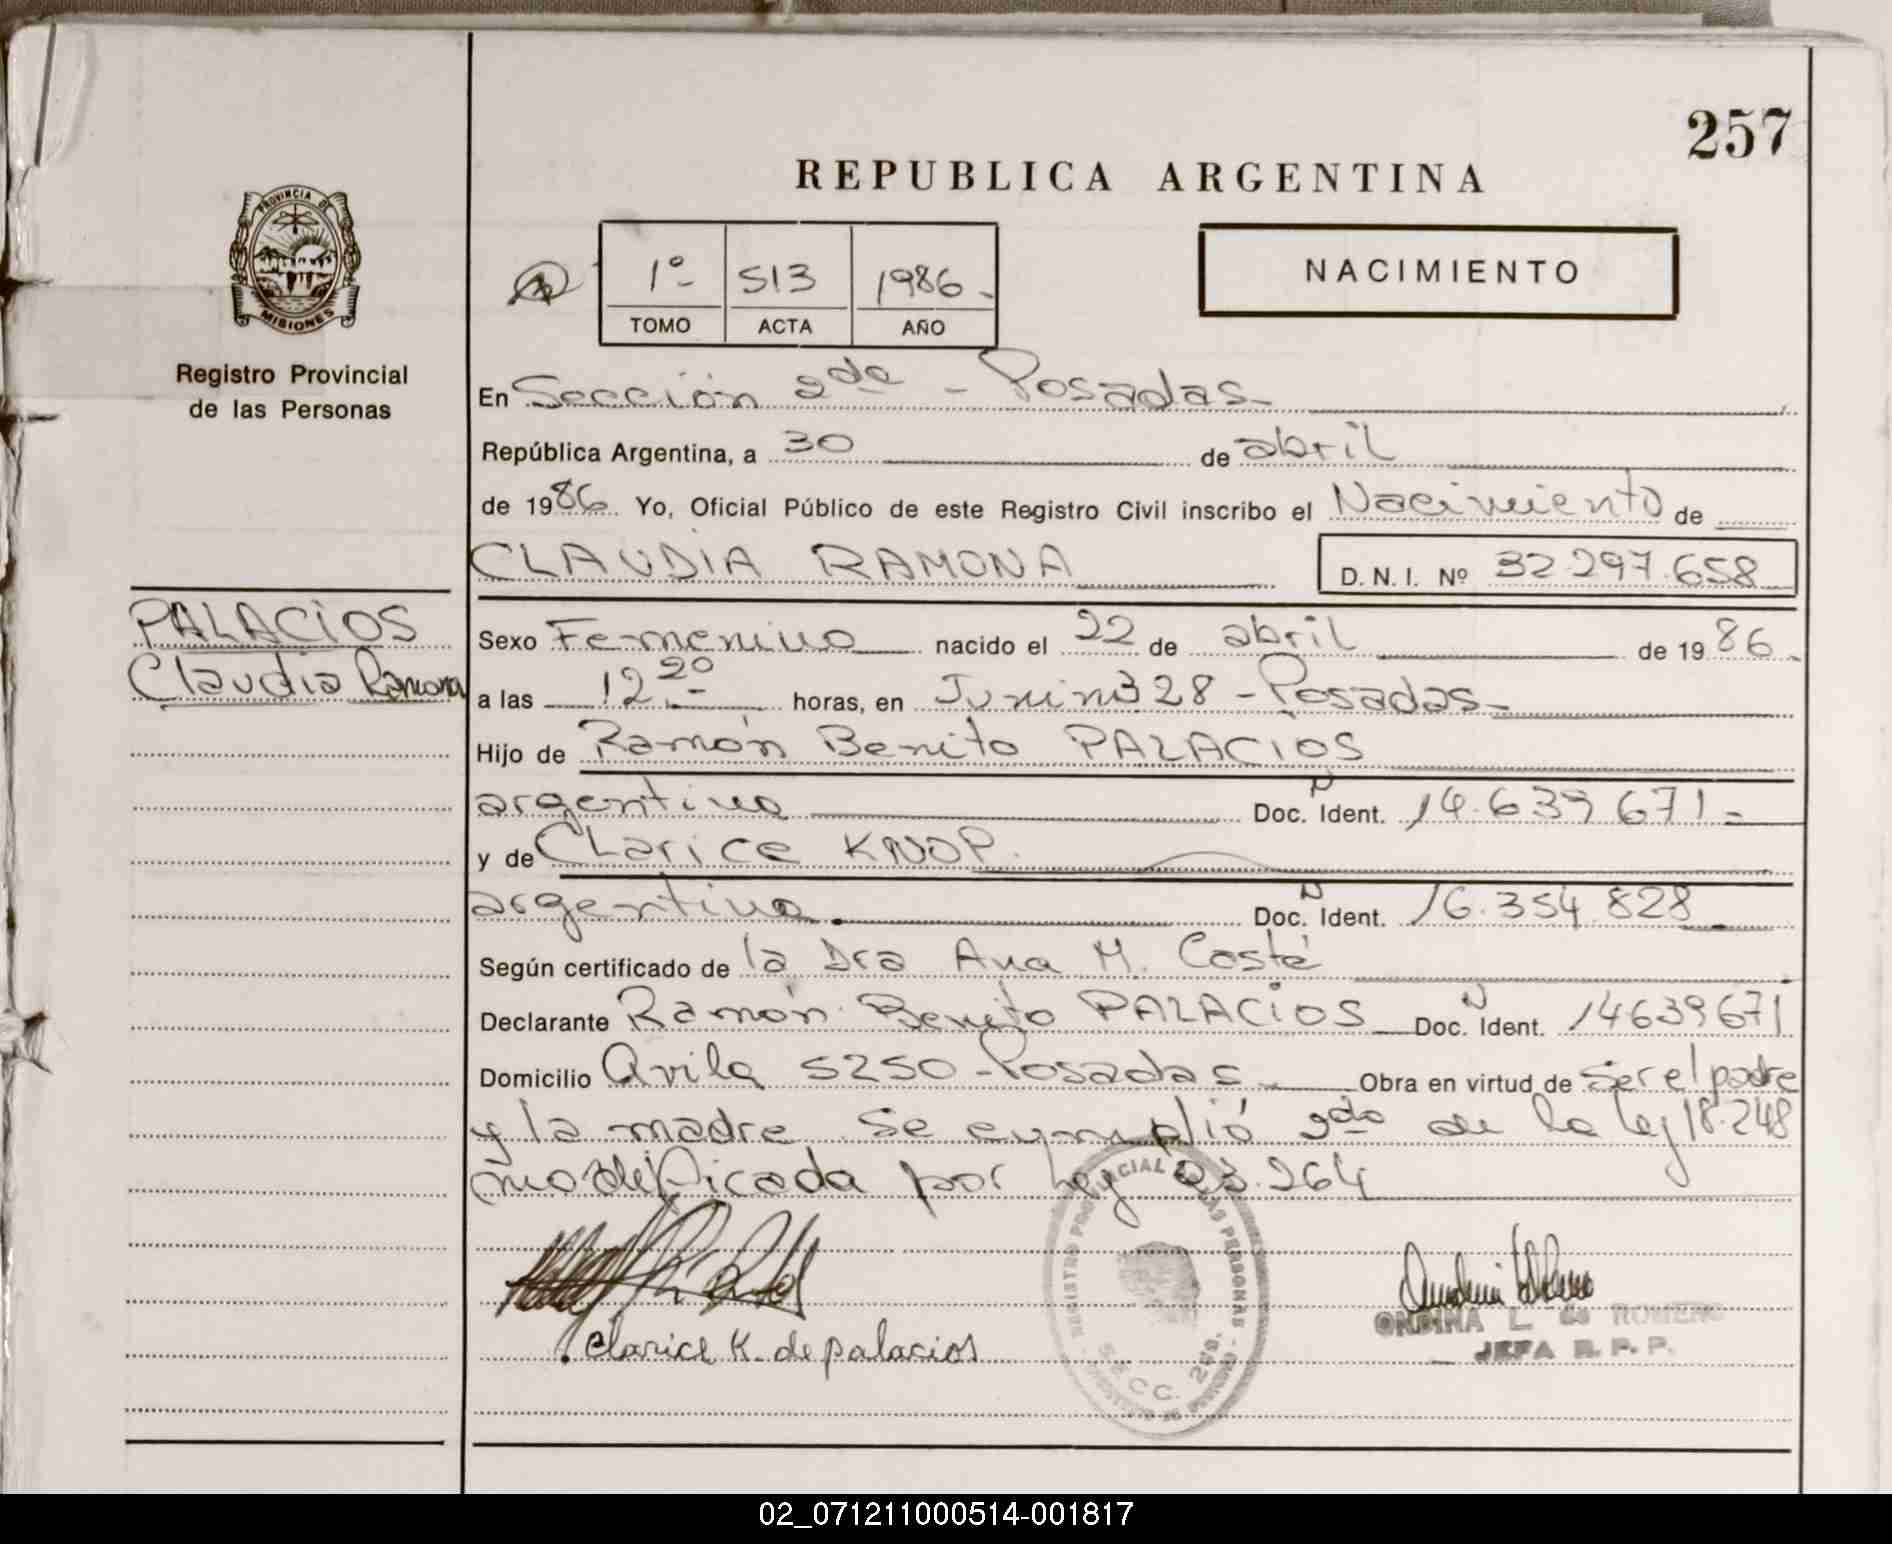 257
REPUBLICA ARGENTINA
PROVINCIA DE
MISIONES
Registro Provincial
de las Personas
1º- 513 1986-
TOMO ACTA AÑO
NACIMIENTO
En Sección 2da - Posadas-
República Argentina, a 30 de abril
de 1986. Yo, Oficial Público de este Registro Civil inscribo el Nacimiento de
CLAUDIA RAMONA D. N. I. Nº 32.297.658
PALACIOS
Claudia Ramona
Sexo Femenino nacido el 22 de abril de 1986.
a las 12 20 horas, en Junin 328 - Posadas-
Hijo de Ramón Benito PALACIOS
argentino Doc. N Ident. 14.639.671-
y de Clarice KNOP.
argentina. Doc. N Ident. 16.354.828
Según certificado de la Dra Ana M. Costé
Declarante Ramón Benito PALACIOS Doc. N Ident. 14639671
Domicilio Avila 5250 - Posadas Obra en virtud de ser el padre
y la madre. Se cumplió 2do de la Ley 18.248
modificada por ley 23.264
Clarice K. de palacios
REGISTRO PROVINCIAL DE LAS PERSONAS
SECC. 2da.
ONDINA L. de ROMERO
JEFA R. P. P.
02_071211000514-001817